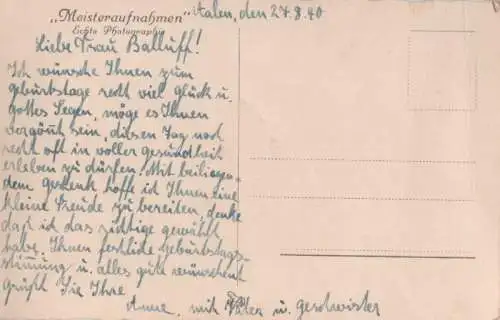 „Meisteraufnahmen"
Echte Photographie
Aalen, den 27.8.40
Liebe Frau Balluff!
Ich wünsche Ihnen zum
Geburtstage recht viel Glück u.
Gottes Segen, möge es Ihnen
vergönnt sein, diesen Tag noch
recht oft in voller Gesundheit
erleben zu dürfen! Mit beiliegen-
dem Geschenk hoffe ich Ihnen eine
kleine Freude zu bereiten, denke
daß ich das richtige gewählt
habe. Ihnen festliche Geburtstags-
stimmung u. alles gute wünschent
grüßt Sie Ihre
Anne, mit Vater u. Geschwister